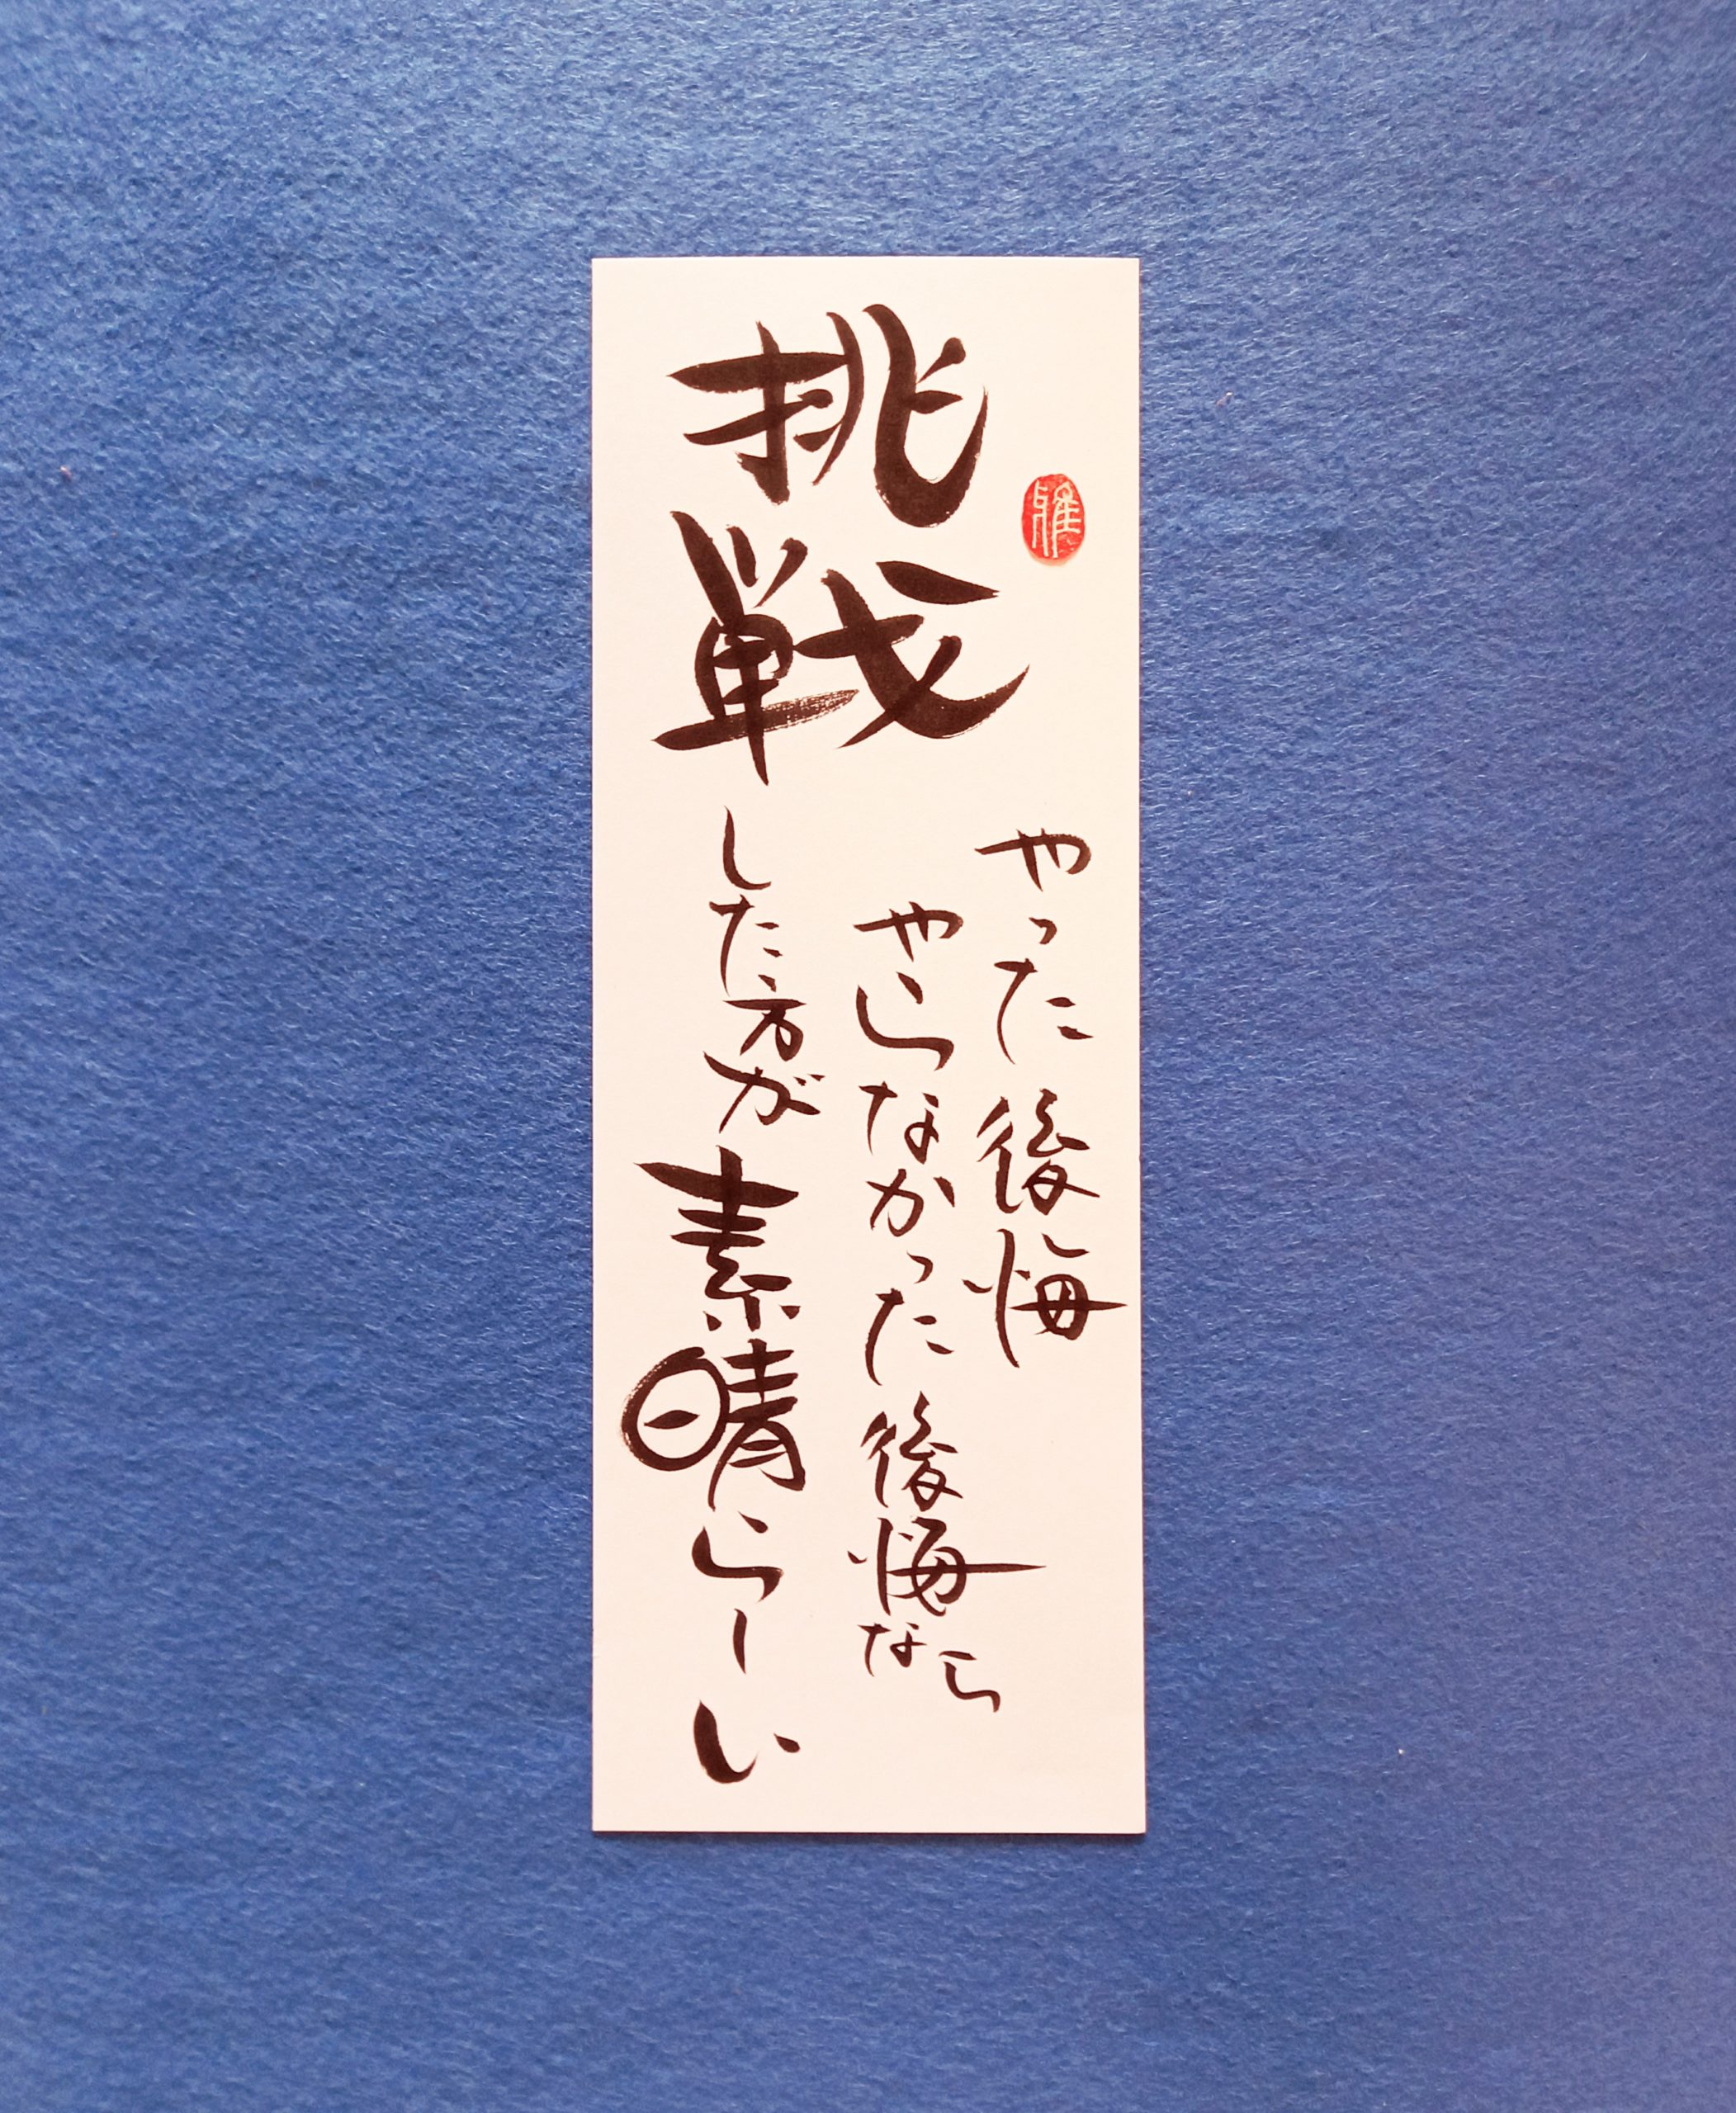 やった後悔
やらなかった後悔なら
挑戦した方が素晴らーい
雅